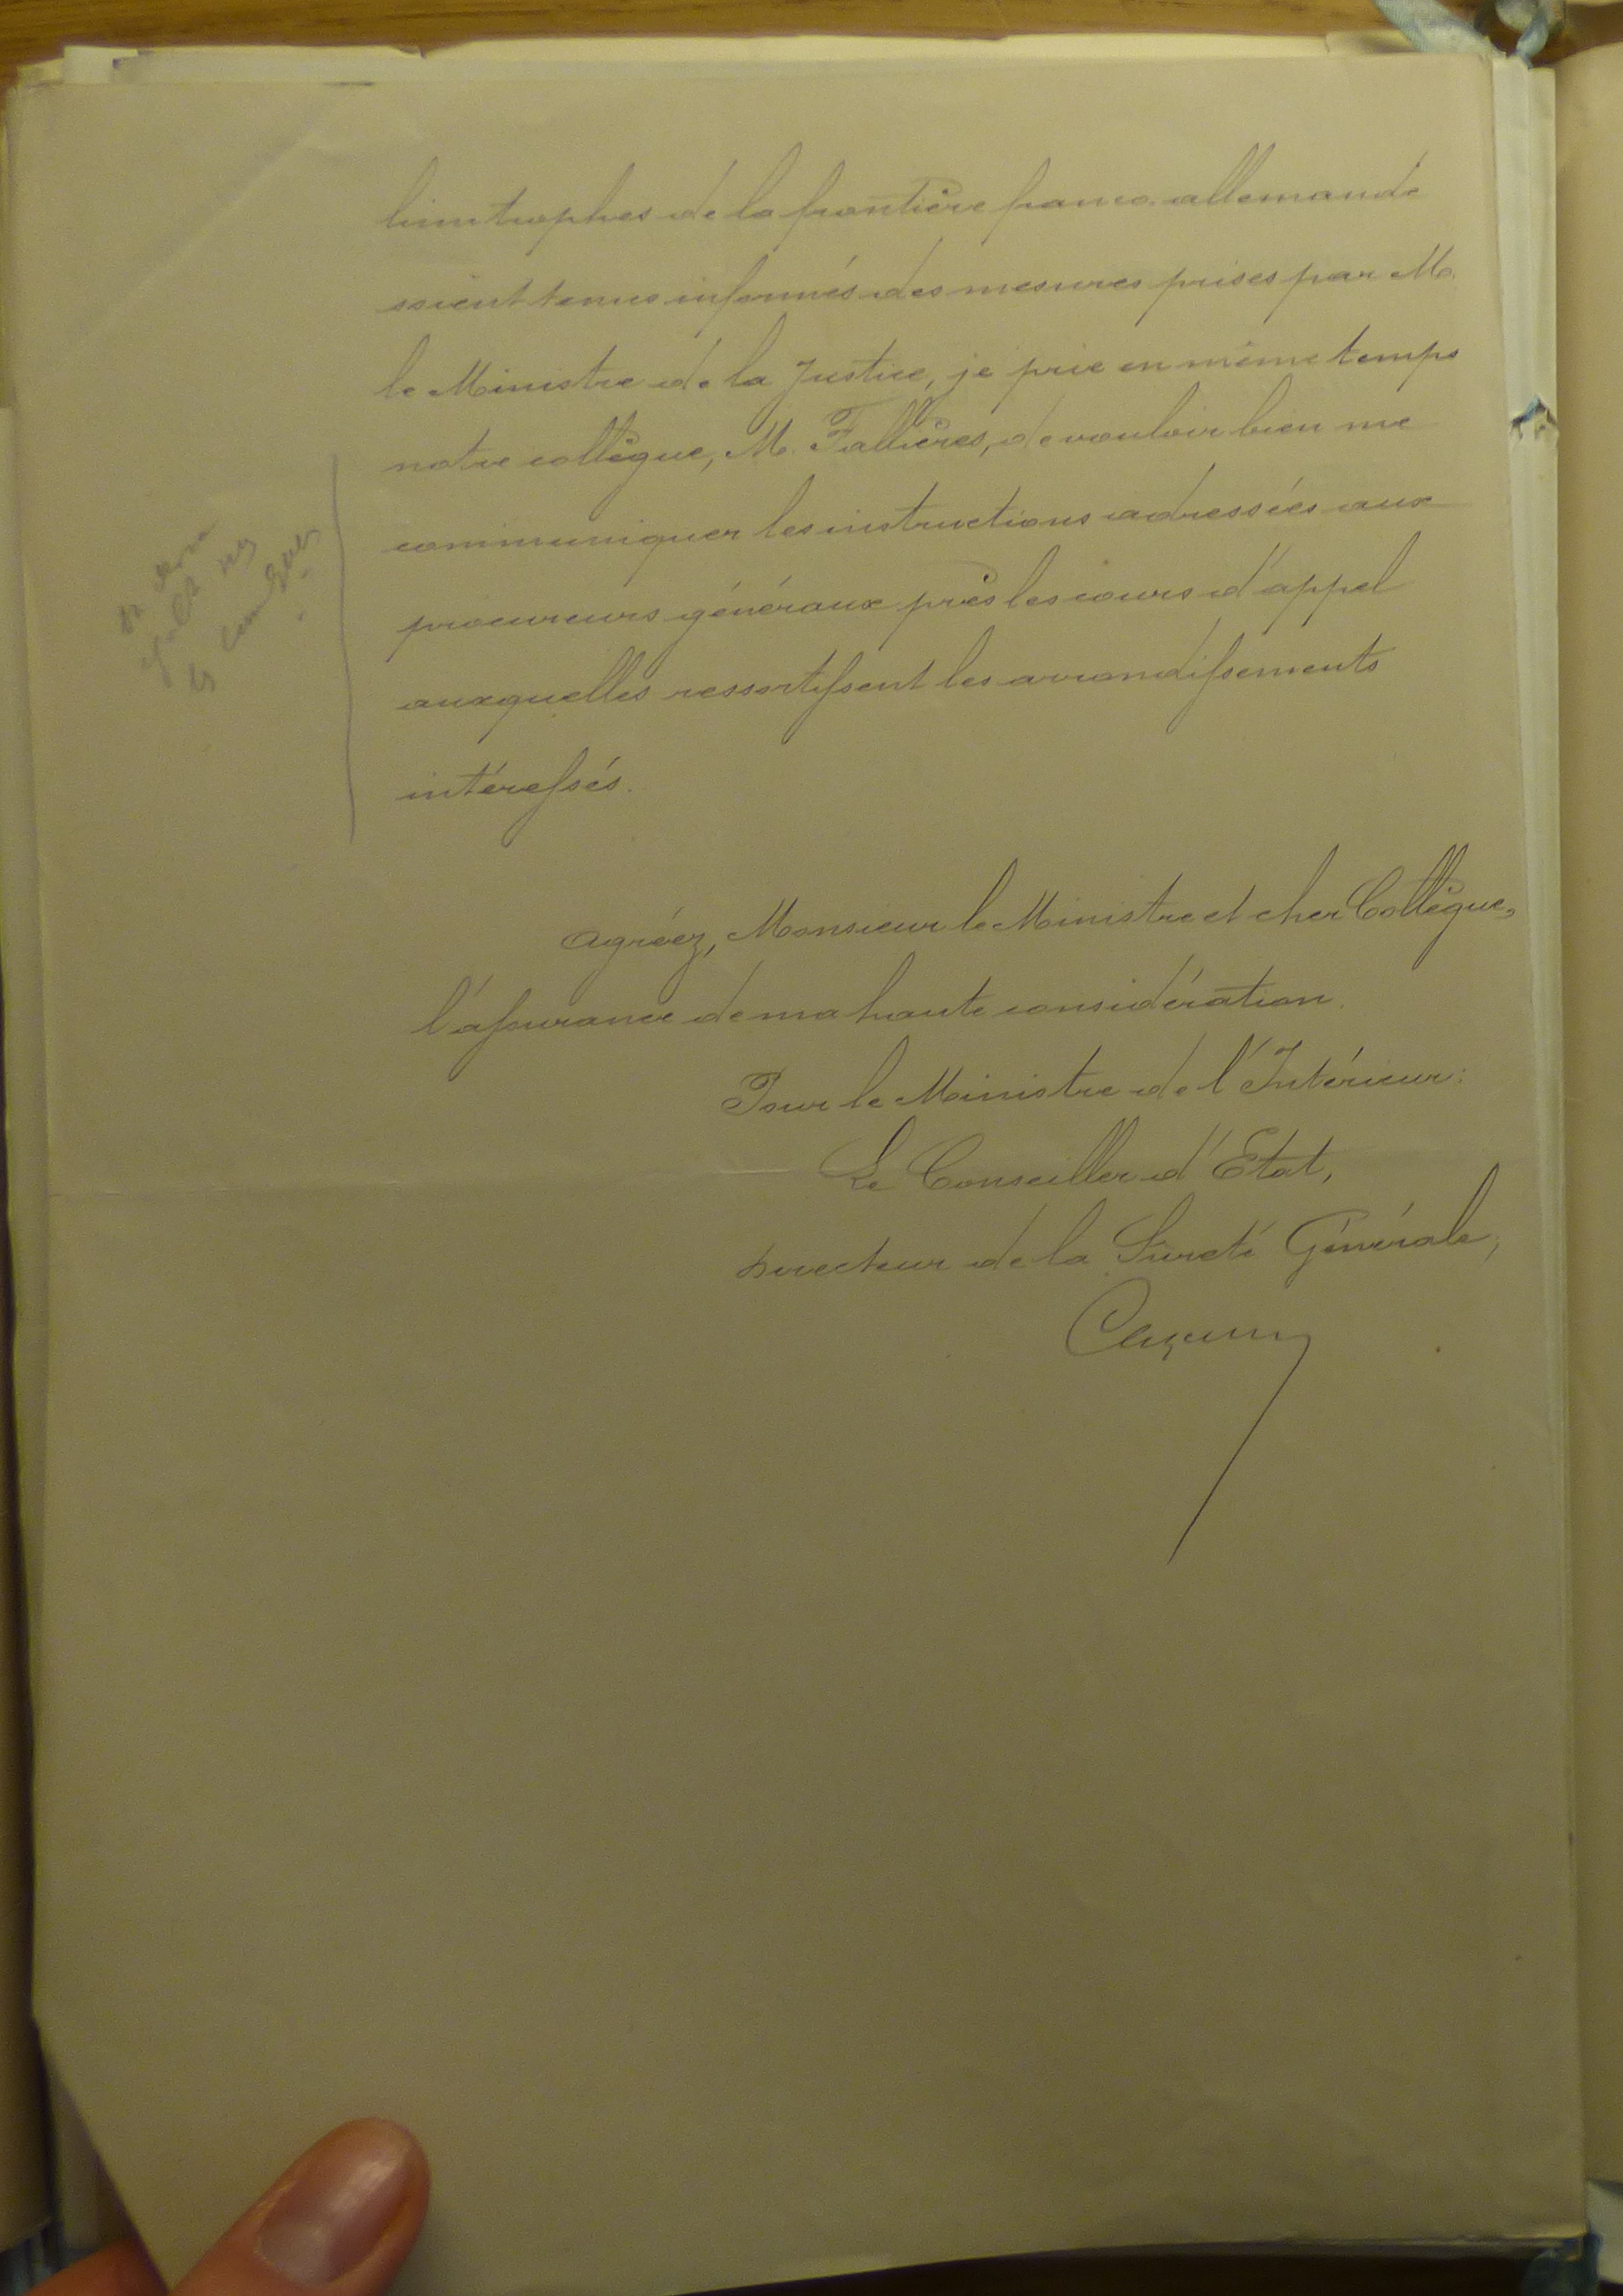 limitrophes de la frontière franco-allemande
soient tenus informés des mesures prises par M.
le Ministre de la Justice, je prie en même temps
notre collègue, M. Fallières, de vouloir bien me
communiquer les instructions adressées aux
procureurs généraux près les cours d'appel
auxquelles ressortissent les arrondissements
intéressés.
Agréez, Monsieur le Ministre et cher Collègue,
l'assurance de ma haute considération.
Pour le Ministre de l'Intérieur:
Le Conseiller d'Etat,
Directeur de la Sureté Générale,